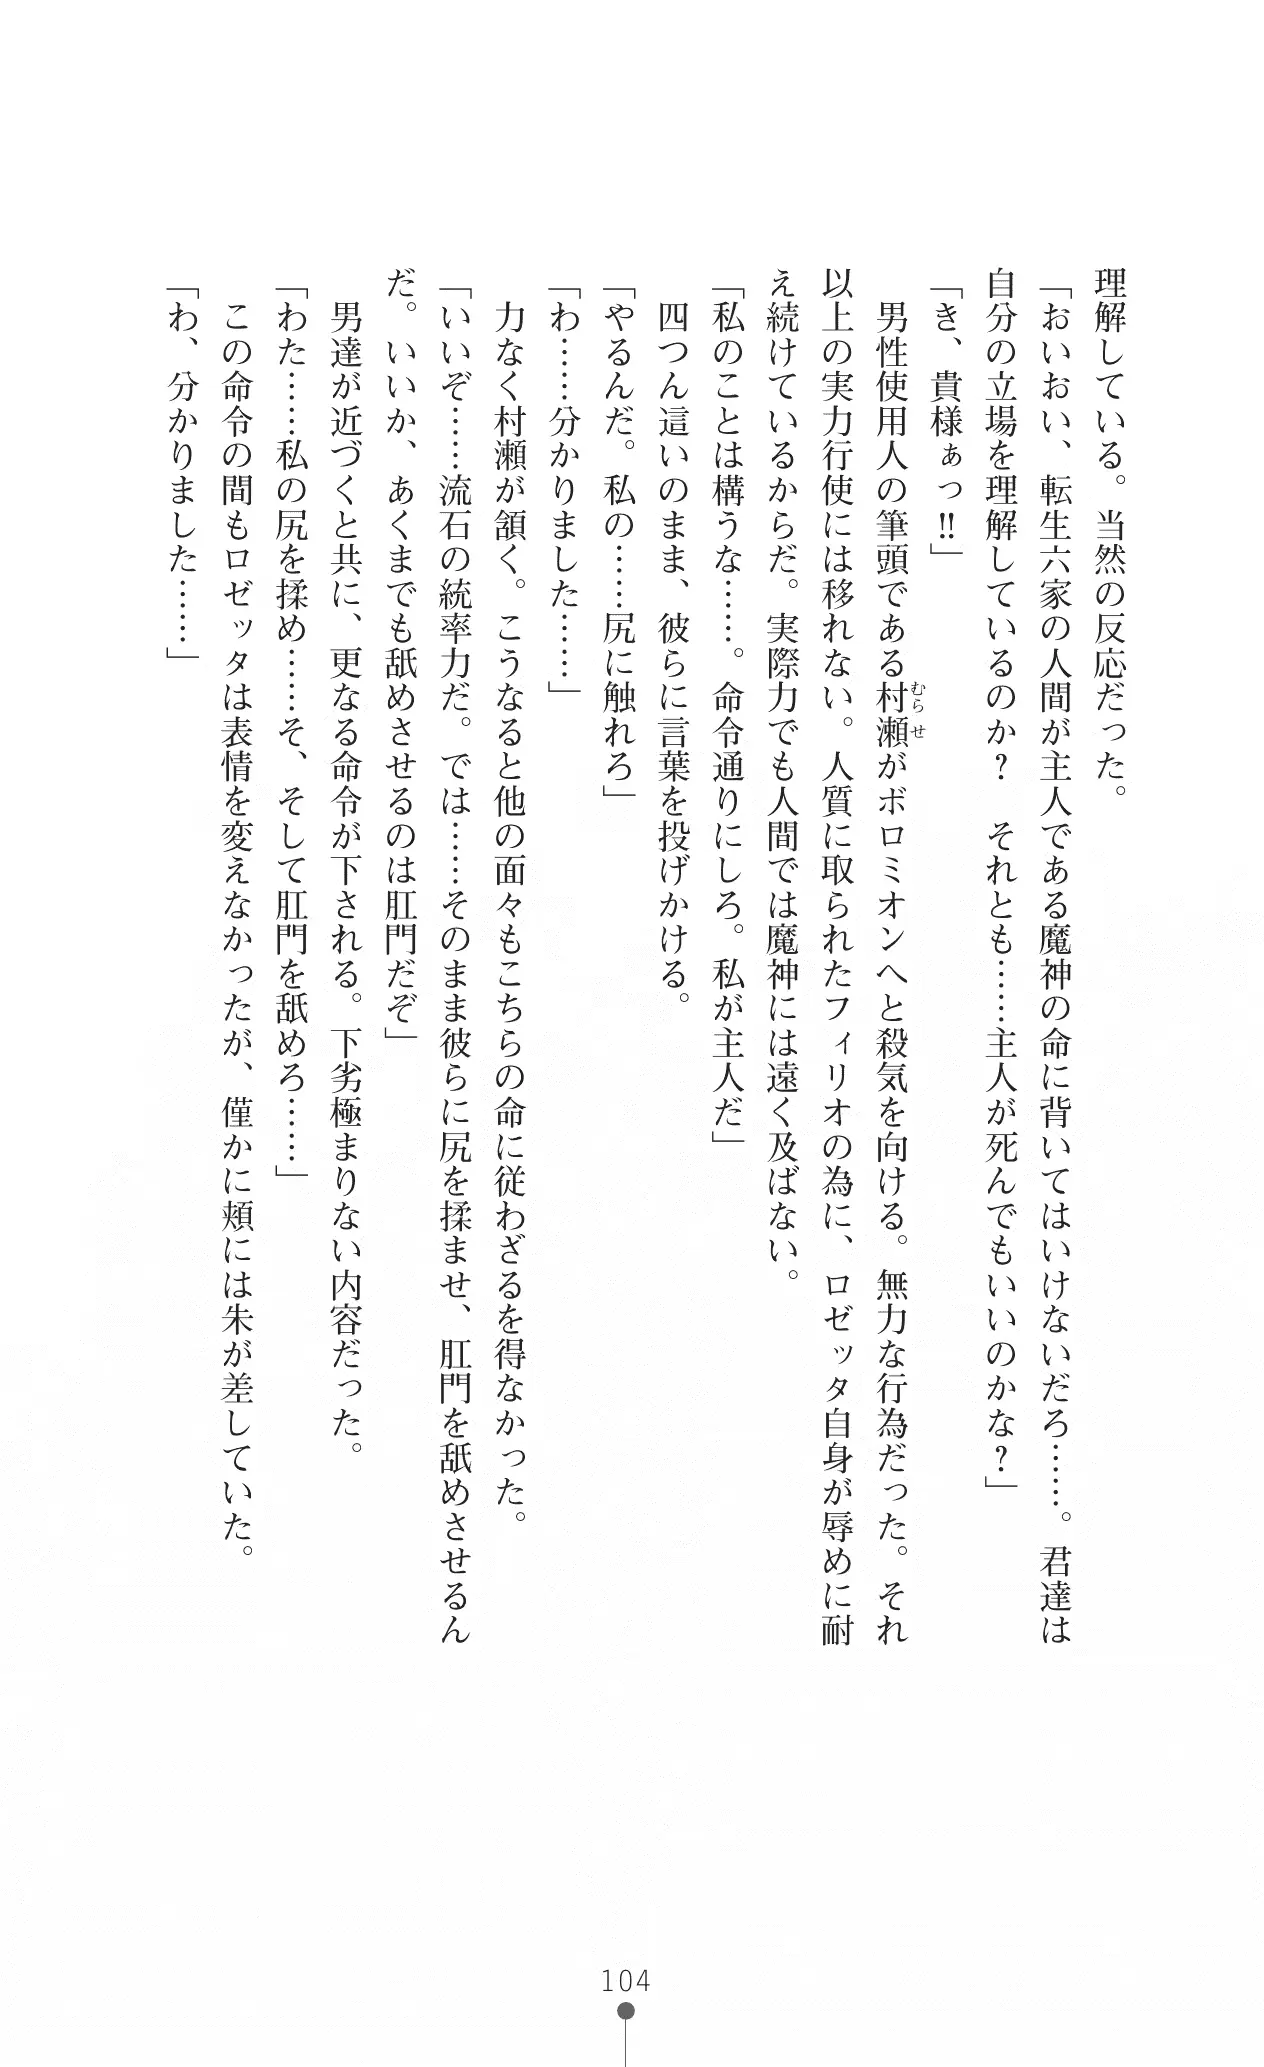 理解している。当然の反応だった。
「おいおい、転生六家の人間が主人である魔神の命に背いてはいけないだろ……。君達は
自分の立場を理解しているのか？　それとも……主人が死んでもいいのかな？」
「き、貴様ぁっ!!」
　男性使用人の筆頭である村瀬がボロミオンへと殺気を向ける。無力な行為だった。それ
むらせ
以上の実力行使には移れない。人質に取られたフィリオの為に、ロゼッタ自身が辱めに耐
え続けているからだ。実際力でも人間では魔神には遠く及ばない。
「私のことは構うな……。命令通りにしろ。私が主人だ」
　四つん這いのまま、彼らに言葉を投げかける。
「やるんだ。私の……尻に触れろ」
「わ……分かりました……」
　力なく村瀬が頷く。こうなると他の面々もこちらの命に従わざるを得なかった。
「いいぞ……流石の統率力だ。では……そのまま彼らに尻を揉ませ、肛門を舐めさせるん
だ。いいか、あくまでも舐めさせるのは肛門だぞ」
　男達が近づくと共に、更なる命令が下される。下劣極まりない内容だった。
「わた……私の尻を揉め……そ、そして肛門を舐めろ……」
　この命令の間もロゼッタは表情を変えなかったが、僅かに頬には朱が差していた。
「わ、分かりました……」
104